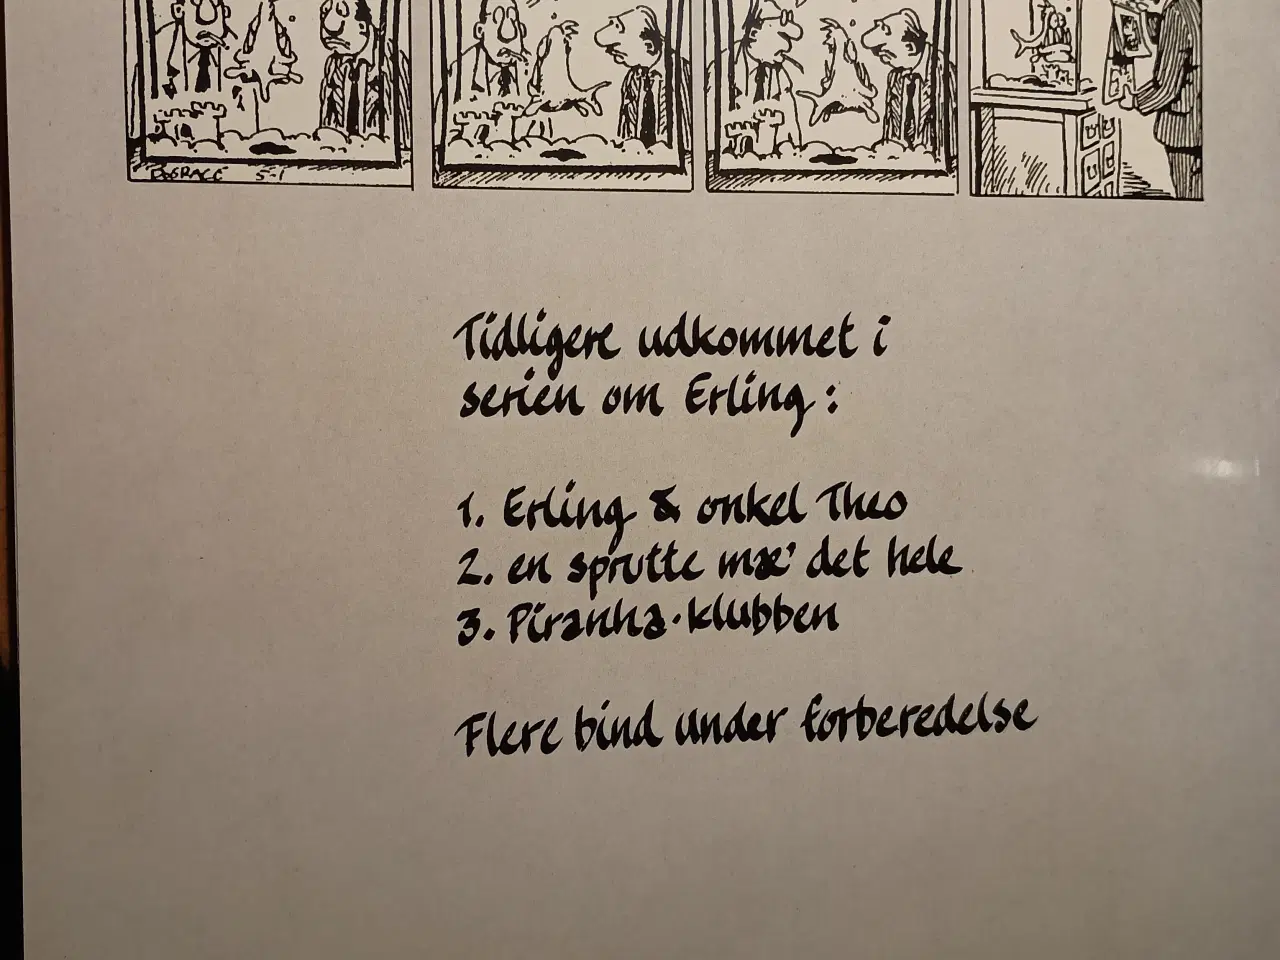 BUD GRACE 5-1
Tidligere udkommet i
serien om Erling:
1. Erling & onkel Theo
2. en sprutte mæ' det hele
3. Piranha-klubben
Flere bind under forberedelse